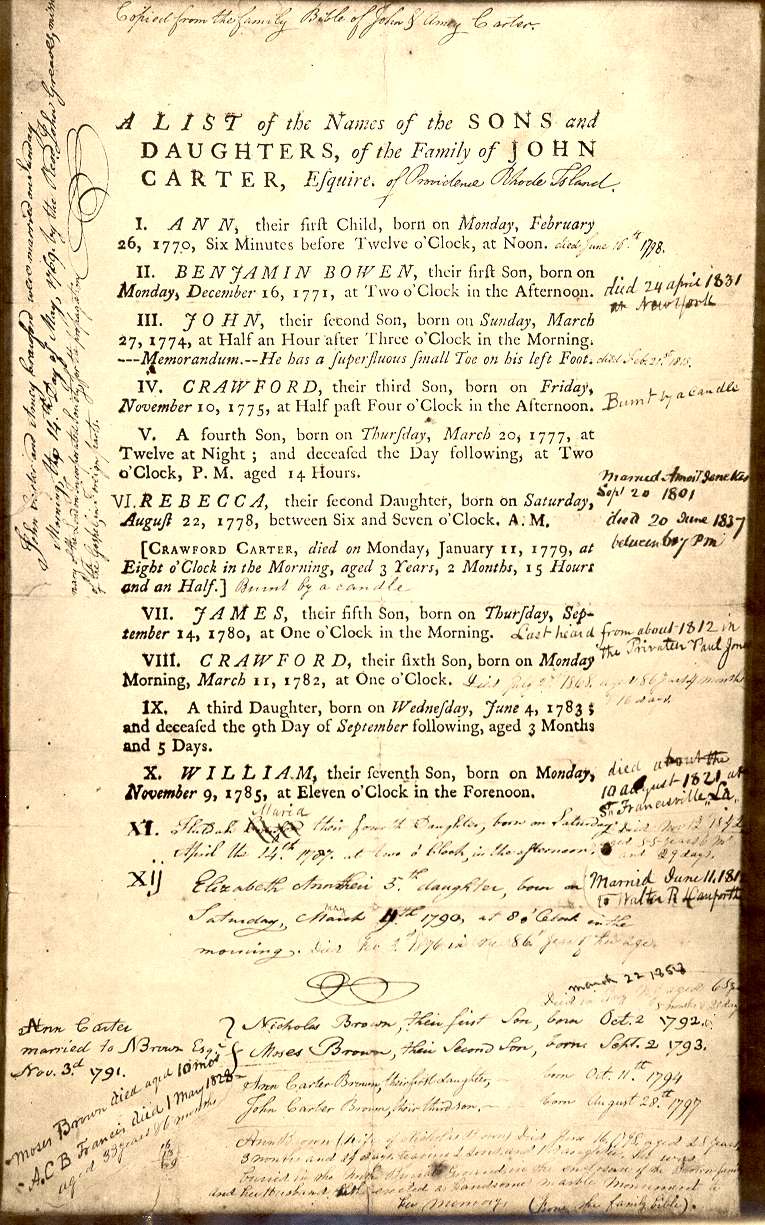 Copied from the family Bible of John & Amey Carter.
A LIST of the Names of the SONS and
DAUGHTERS, of the Family of JOHN
CARTER, Eſquire. of Providence Rhode Island.
John Carter and Amey Crawford were married on Sunday
Morning, the 14th Day of May, 1769, by the Revd. John Greaves, missio
nary of the
of the Gospel in foreign parts.
I. ANN, their firſt Child, born on Monday, February
26, 1770, Six Minutes before Twelve o'Clock, at Noon. died June 16th 1798.
II. BENJAMIN BOWEN, their firſt Son, born on
Monday, December 16, 1771, at Two o'Clock in the Afternoon.
died 24 april 1831
at New York
III. JOHN, their ſecond Son, born on Sunday, March
27, 1774, at Half an Hour after Three o'Clock in the Morning.
---Memorandum.--He has a ſuperfluous ſmall Toe on his left Foot. died Feb. 21st 1815.
IV. CRAWFORD, their third Son, born on Friday,
November 10, 1775, at Half paſt Four o'Clock in the Afternoon.
Burnt by a candle
V. A fourth Son, born on Thurſday, March 20, 1777, at
Twelve at Night; and deceaſed the Day following, at Two
o'Clock, P. M. aged 14 Hours.
VI. REBECCA, their ſecond Daughter, born on Saturday,
Auguſt 22, 1778, between Six and Seven o'Clock. A. M.
Married Amos T Jenckes
Sept 20 1801
died 20 June 1837
between 6 & 7 Pm
[CRAWFORD CARTER, died on Monday, January 11, 1779, at
Eight o'Clock in the Morning, aged 3 Years, 2 Months, 15 Hours
and an Half.] Burnt by a candle
VII. JAMES, their fifth Son, born on Thurſday, Sep-
tember 14, 1780, at One o'Clock in the Morning. Last heard from about 1812 in
the Privateer Paul Jones
VIII. CRAWFORD, their ſixth Son, born on Monday
Morning, March 11, 1782, at One o'Clock. Died 1868. aged 86 years 4 months
& 16 days.
IX. A third Daughter, born on Wedneſday, June 4, 1783;
and deceaſed the 9th Day of September following, aged 3 Months
and 5 Days.
X. WILLIAM, their ſeventh Son, born on Monday,
November 9, 1785, at Eleven o'Clock in the Forenoon.
died about the
10 august 1821 at
St. Francisville, La.
Maria
XI. Huldah their fourth Daughter, born on Saturday
April the 14th 1787. at two o'Clock, in the afternoon.
died Nov 12 1842
aged 55 years 6 mo
and 29 days.
XIJ Elizabeth Ann their 5th daughter, born on
Saturday, March may 1790, at 8 o'Clock in the
morning. Died 1876 in the 86th year of her age.
Married June 11, 181
to Walter R Danforth
march 22 1858
Ann Carter
married to N Brown Esqr.
Nov. 3d 1791.
Nicholas Brown, their first Son, born Oct. 2 1792.
Moses Brown, their Second Son, born Sept. 2 1793.
Ann Carter Brown, their first daughter, born Oct. 11th 1794
John Carter Brown, their third son, born August 28th 1797
Moses Brown died aged 10 mos
A.C B Francis died 1 May 1828
aged 33 years & 6 months
Ann Brown (wife of Nicholas Brown) died June 16 1798, aged 28 years
3 months and 21 days, leaving 2 sons and 1 Daughter, she was
buried in the North Burial Ground in the enclosure of the Brown family
and her Husband, erected a handsome marble Monument to
her Memory. (from the family bible).